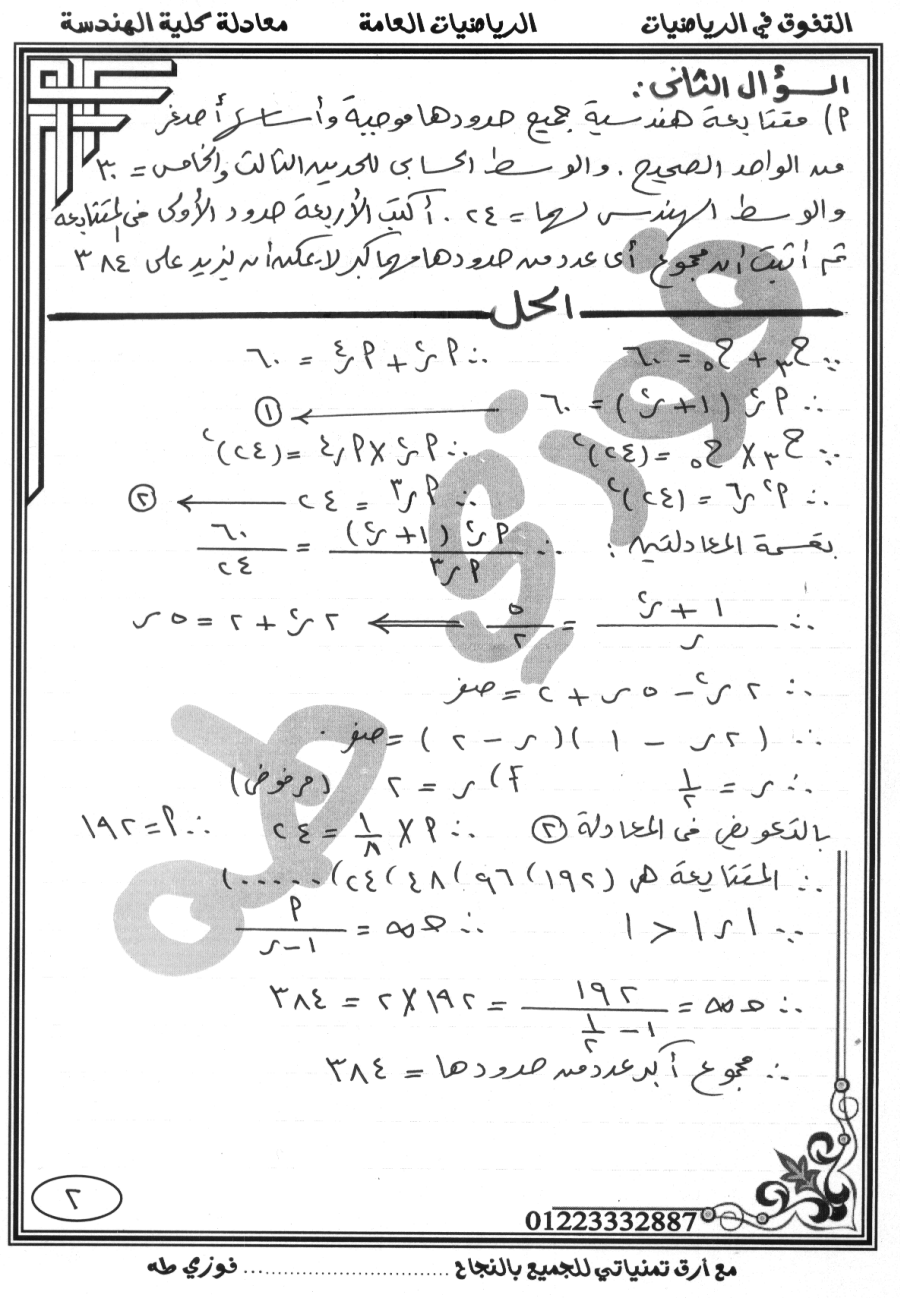 التفوق في الرياضيات الرياضيات العامة معادلة كلية الهندسة
السؤال الثانى :
P) متتابعة هندسية جميع حدودها موجبة وأساسها أصغر
من الواحد الصحيح . والوسط الحسابى للحدين الثالث والخامس = ٣٠
والوسط الهندسى لهما = ٢٤ . أكتب الأربعة حدود الأولى فى المتتابعة
ثم أثبت أن مجموع أى عدد من حدودها مهما كبر لا يمكن أن يزيد على ٣٨٤
الحل
∵ ح٣ + ح٥ = ٦٠ ∴ P ر٢ + P ر٤ = ٦٠
∴ P ر٢ (١ + ر٢) = ٦٠ ← ①
∵ ح٣ × ح٥ = (٢٤)٢ ∴ P ر٢ × P ر٤ = (٢٤)٢
∴ P٢ ر٦ = (٢٤)٢ ∴ P ر٣ = ٢٤ ← ②
بقسمة المعادلتين : ∴ P ر٢ (١ + ر٢) / P ر٣ = ٦٠ / ٢٤
∴ ١ + ر٢ / ر = ٥ / ٢ ⇐ ٢ ر٢ + ٢ = ٥ ر
∴ ٢ ر٢ − ٥ ر + ٢ = صفر
∴ (٢ر − ١)(ر − ٢) = صفر .
∴ ر = ١/٢ أ) ر = ٢ (مرفوض)
بالتعويض فى المعادلة ② ∴ P × ١/٨ = ٢٤ ∴ P = ١٩٢
∴ المتتابعة هى (١٩٢) ٩٦) ٤٨) ٢٤) ......)
∵ |ر| < ١ ∴ حـ∞ = P / ١ − ر
∴ حـ∞ = ١٩٢ / ١ − ١/٢ = ١٩٢ × ٢ = ٣٨٤
∴ مجموع أكبر عدد من حدودها = ٣٨٤
٢
01223332887
مع أرق تمنياتي للجميع بالنجاح .............................. فوزي طه
فوزي طه